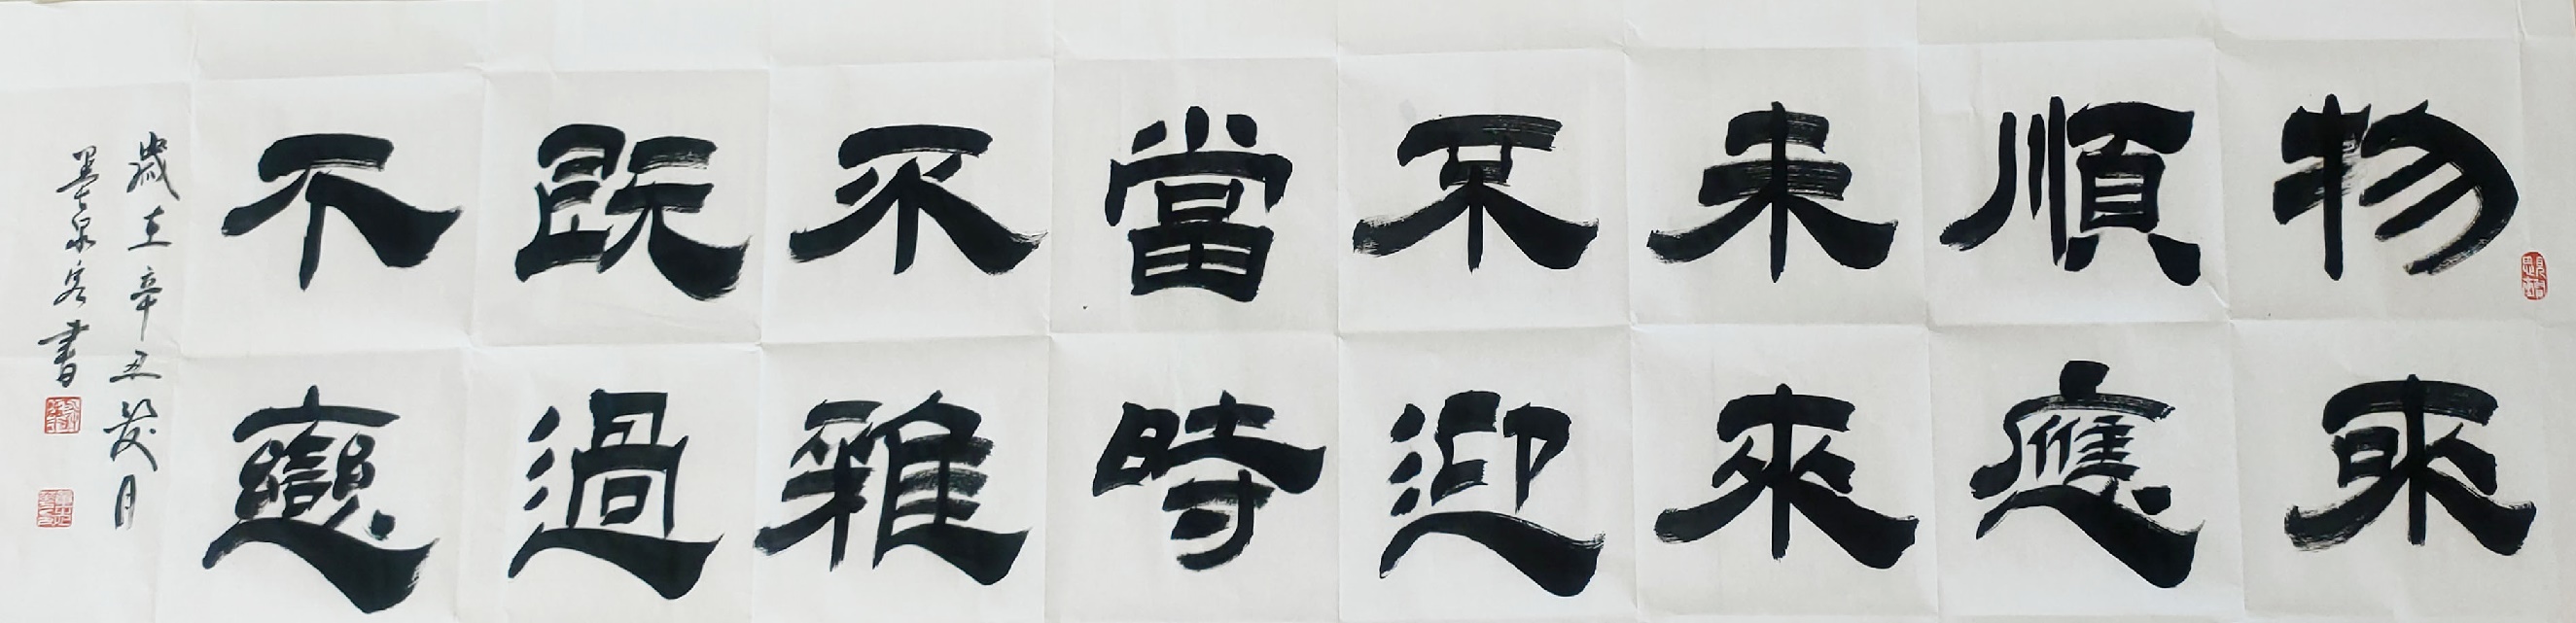 物來
順應
未來
不迎
當時
不雜
既過
不戀
歲在辛丑月
墨泉客書